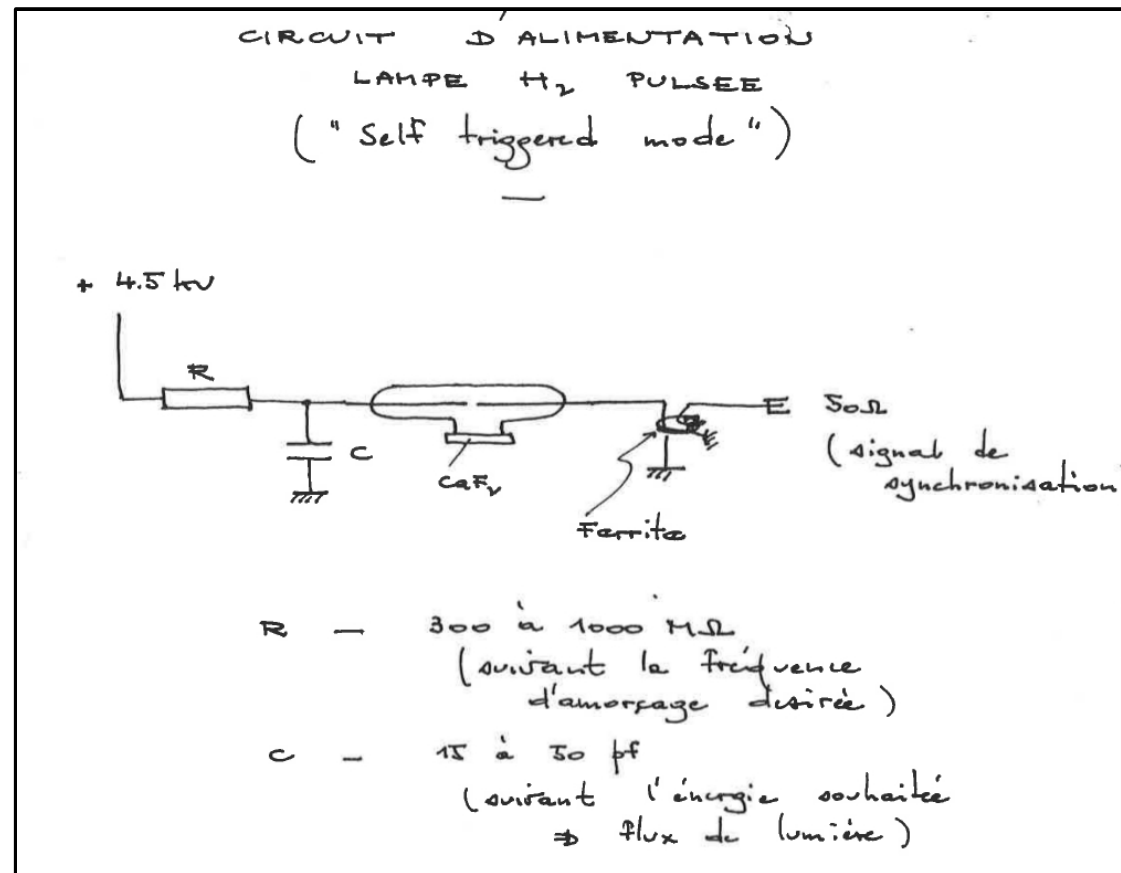 CIRCUIT D'ALIMENTATION
LAMPE H₂ PULSEE
("Self triggered mode")
+ 4.5 kV
R
C
CaF₂
E 50Ω
(signal de
synchronisation
Ferrite
R — 300 à 1000 MΩ
(suivant la fréquence
d'amorçage desirée)
C — 15 à 50 pf
(suivant l'énergie souhaitée
⇒ flux de lumière)